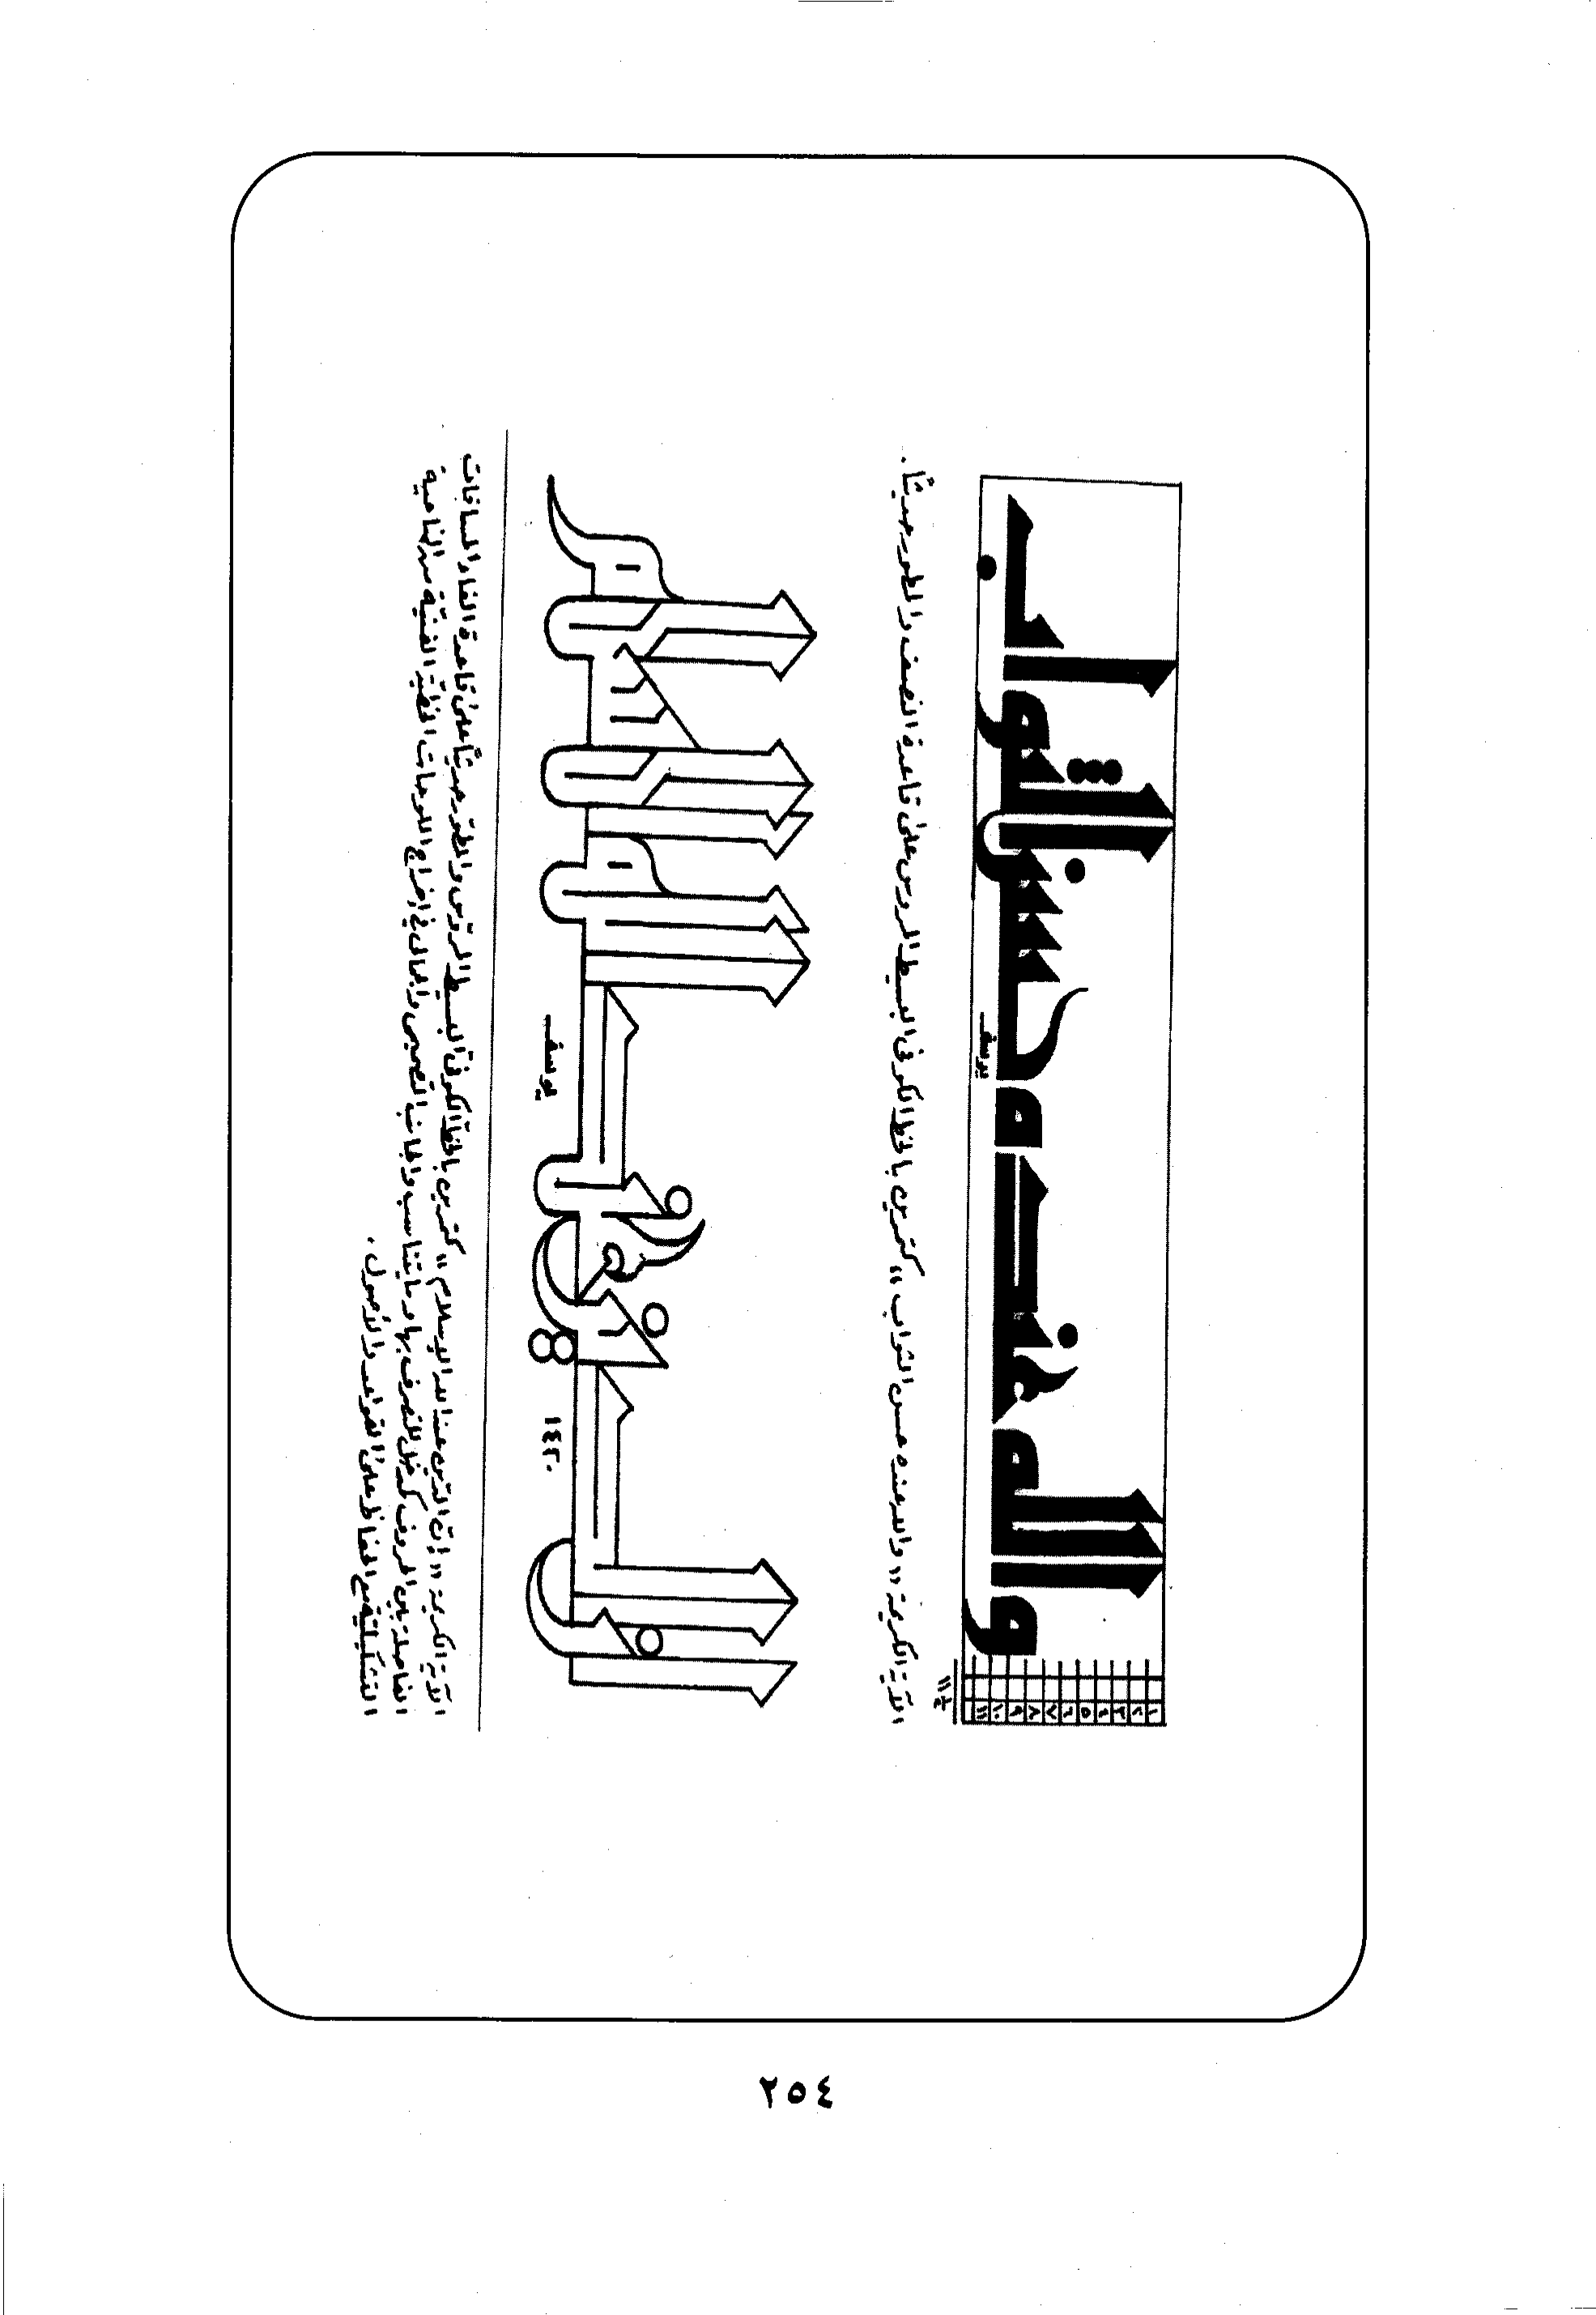 والله عنده حسن الثواب
يوسف
١ ٢ ٣ ٤ ٥ ٦ ٧ ٨ ٩ ١٠ ١١
١١
الآية الكريمة « والله عنده حسن الثواب » كتبت بالخط الكوفي البسيط المروس على قاعدة النصف والمطور حديثاً .
إن الدين عند الله الإسلام
يوسف
١٤٢٠
الآية الكريمة « إن الدين عند الله الإسلام » كتبت بالخط الكوفي البسيط المروس والمطور حديثاً على قاعدة الغاء المسافات
الفاصلة بين الحروف كمدخل للتصرف بها وما يتناسب والجانب التصميمي والجمالي في إخراج اللوحات الخطية الفنية من الناحية
التشكيلية مع الحفاظ على القواعد والأصول .
٢٥٤